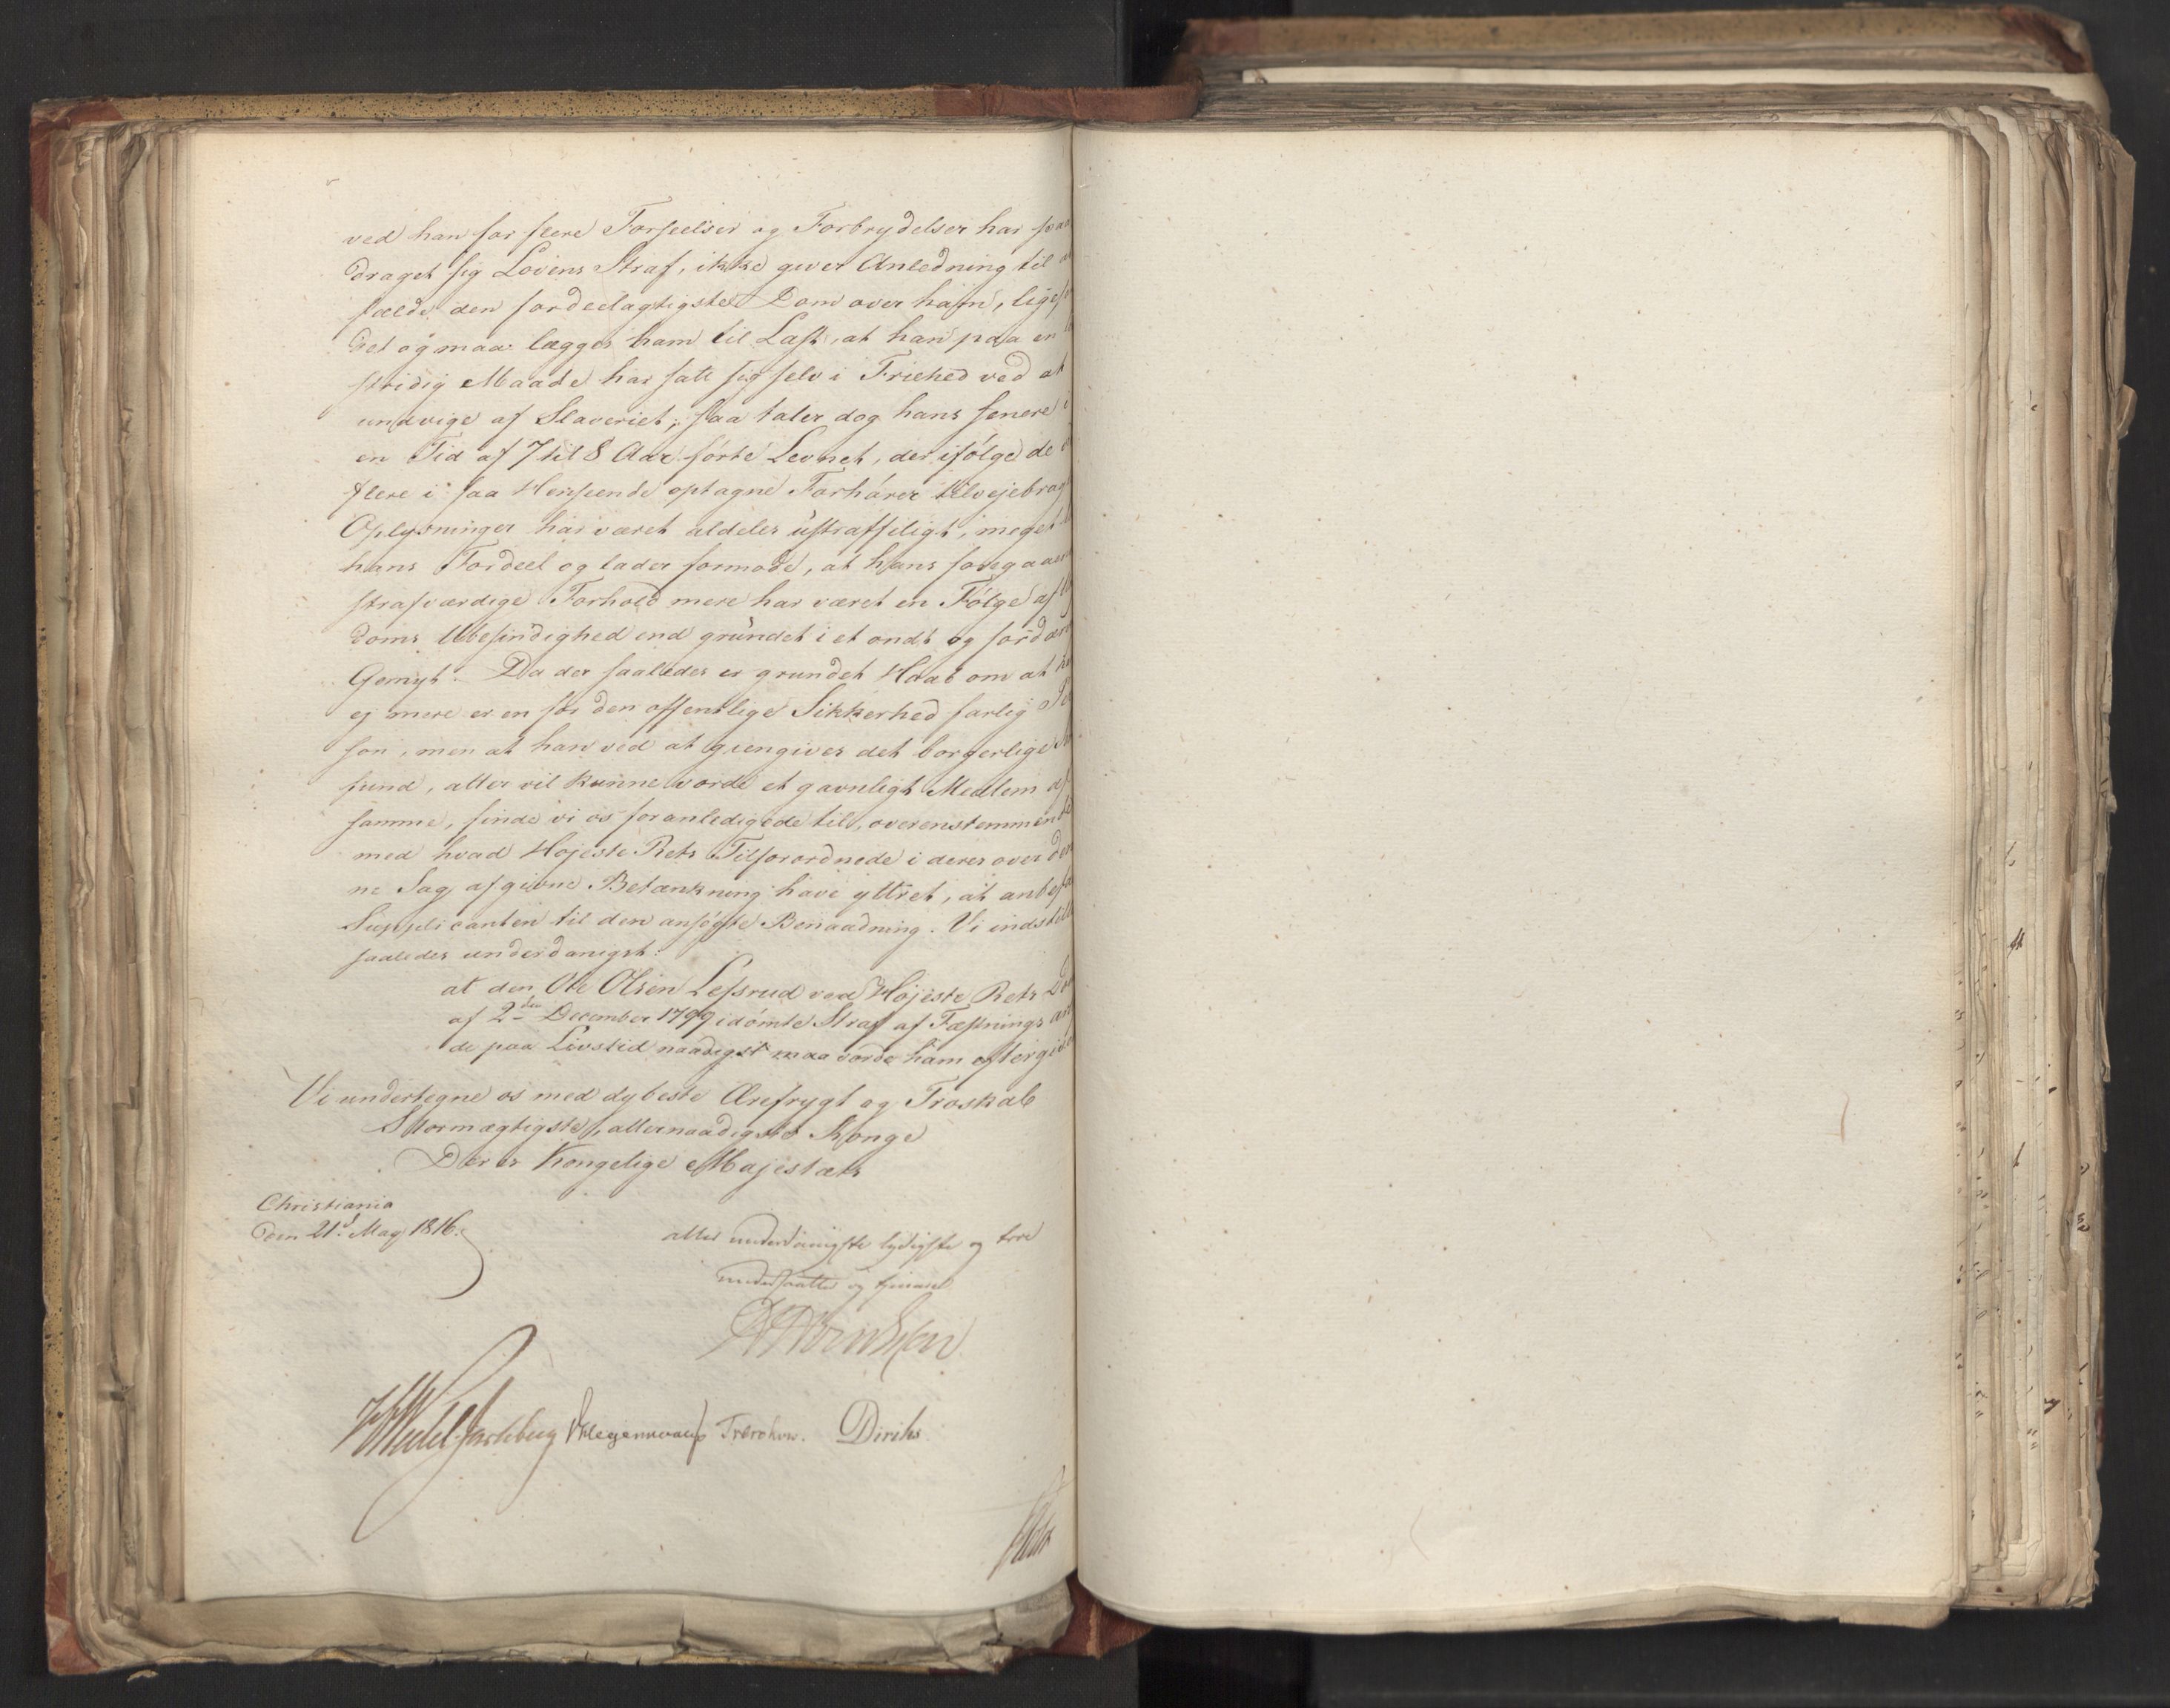 ved han for flere Forseelser og Forbrydelser har paa
draget sig Lovens Straf, ikke giver Anledning til
fælde den fordeelagtigste Dom over ham, lige
det og maa lægges ham til Last, at han paa en
stridig Maade har satt sig selv i Friehed ved at
undvige af Slaveriet; saa taler dog hans senere i
en Tid af 7 til 8 Aar førte Levnet, der ifølge de
flere i saa Henseende optagne Forhører tilvejebrag
Oplysninger har været aldeles ustraffeligt, meget
hans Fordeel og lader formode, at hans foregaae
strafværdige Forhold mere har været en Følge af
doms Ubesindighed end grundet i et ondt og fordær
Gemyt. Da der saaledes er grundet Haab om at
ej mere er en for den offentlige Sikkerhed farlig Per
son, men at han ved at giengives det borgerlige
fund, atter vil kunne vorde et gavnligt Medlem af
samme, finde vi os foranledigede til, overenstemmende
med hvad Højeste Rets Tilforordnede i deres over den
ne Sag afgivne Betænkning have yttret, at anbef
Supplicanten til den ansøgte Benaadning. Vi indstill
saaledes underdanigst:
at den Ole Olsen Lefsrud ved Højeste Rets Do
af 2den December 1799 idømte Straf af Fæstnings
de paa Livstid naadigst maa vorde ham eftergiv
Vi undertegne os med dybeste Ærefrygt og Troskab
Stormægtigste, allernaadigste Konge
Deres Kongelige Majestæts
Christiania
den 21d May 1816.
aller underdanigste lydigste og troe
undersaatter og tienere
Wedel Jarlsberg Treschow. Diriks